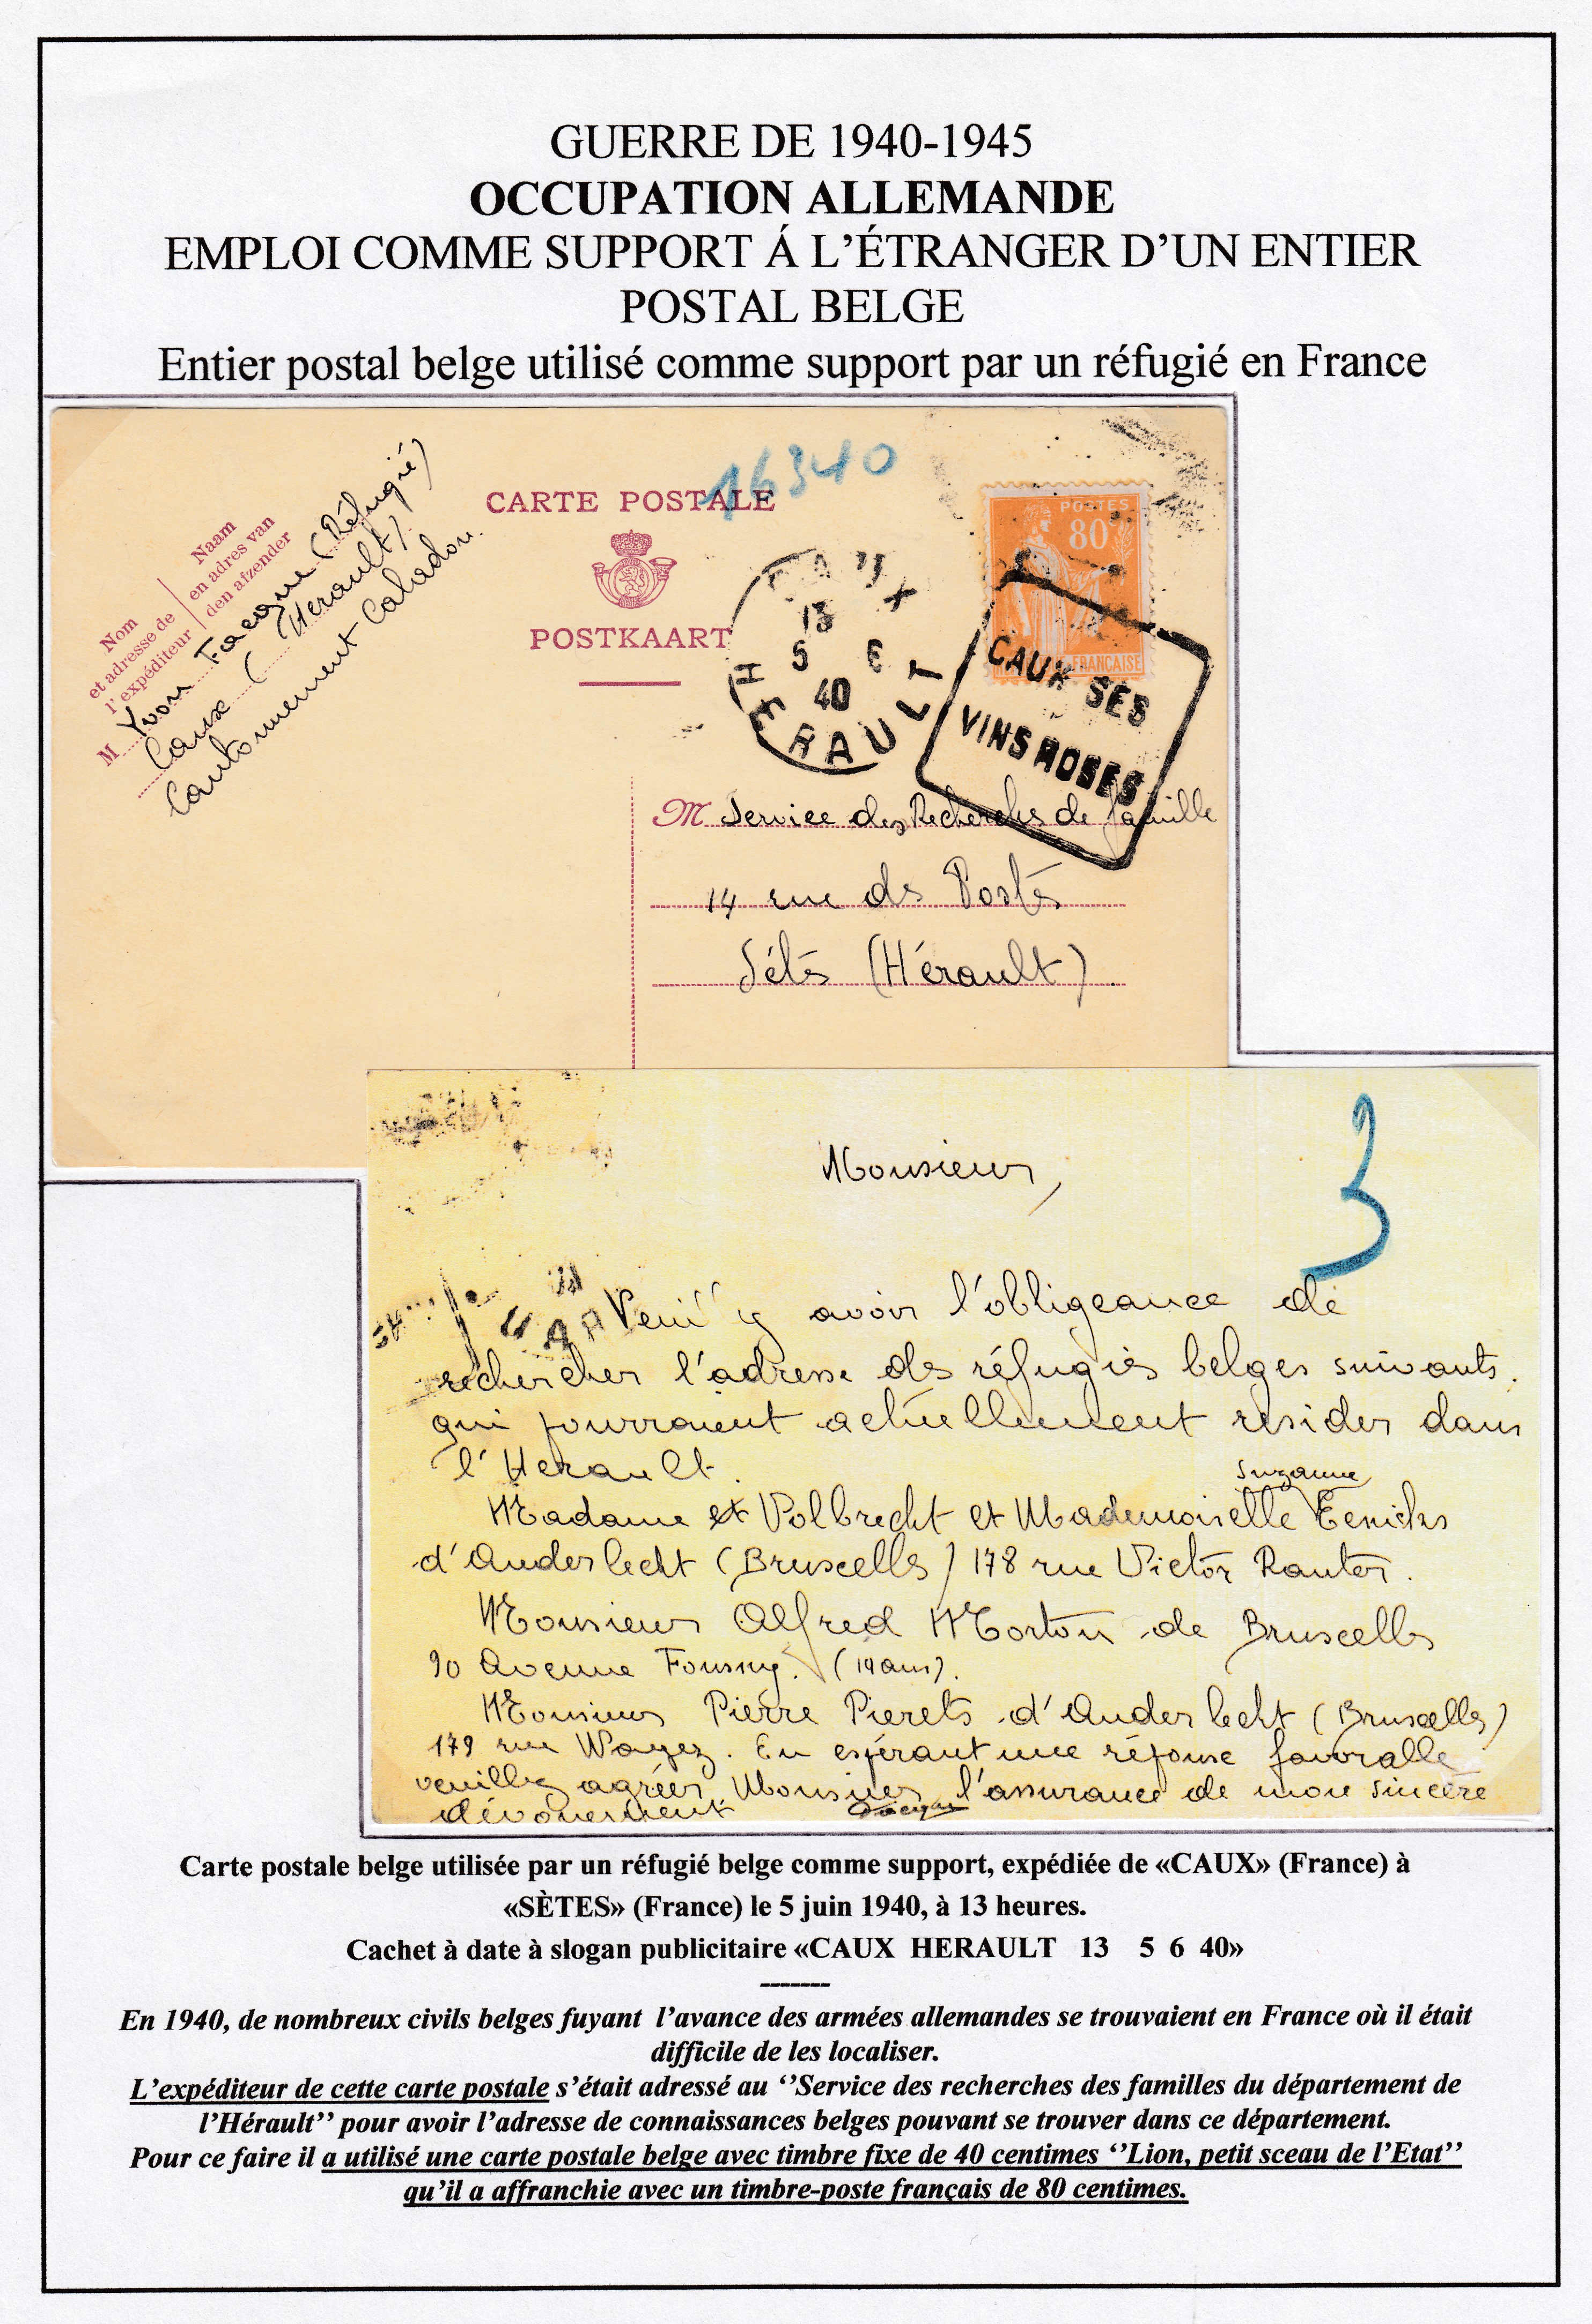 GUERRE DE 1940-1945
OCCUPATION ALLEMANDE
EMPLOI COMME SUPPORT Á L’ÉTRANGER D’UN ENTIER
POSTAL BELGE
Entier postal belge utilisé comme support par un réfugié en France
16340
CARTE POSTALE
POSTKAART
Nom
et adresse de
l'expéditeur
Naam
en adres van
den afzender
M Yvon Jacque (Réfugié)
Caux (Herault)
Cantonnement Caladou
POSTES
80
FRANÇAISE
CAUX
13
5 6
40
HERAULT
CAUX SES
VINS ROSES
M Service des Recherches de famille
14 rue des Postes
Sétes (Hérault)
3
Monsieur,
avoir l'obligeance de
rechercher l'adresse des réfugiés belges suivants
qui pourraient actuellement resider dans
l'Herault.
Suzanne
Madame et Volbrecht et Mademoiselle
d'Anderlecht (Bruxelles) 178 rue Victor Rauter.
Monsieur Alfred Morton de Bruxelles
90 Avenue Fonsny. (19 ans).
Monsieur Pierre Pierets d'Anderlecht (Bruxelles)
179 rue Wayez. En espérant une réponse favorable
veuillez agréer Monsieur l'assurance de mon sincère
dévouement
Carte postale belge utilisée par un réfugié belge comme support, expédiée de «CAUX» (France) à
«SÈTES» (France) le 5 juin 1940, à 13 heures.
Cachet à date à slogan publicitaire «CAUX HERAULT 13 5 6 40»
-------
En 1940, de nombreux civils belges fuyant l’avance des armées allemandes se trouvaient en France où il était
difficile de les localiser.
L’expéditeur de cette carte postale s’était adressé au ‘’Service des recherches des familles du département de
l’Hérault’’ pour avoir l’adresse de connaissances belges pouvant se trouver dans ce département.
Pour ce faire il a utilisé une carte postale belge avec timbre fixe de 40 centimes ‘’Lion, petit sceau de l’Etat’’
qu’il a affranchie avec un timbre-poste français de 80 centimes.